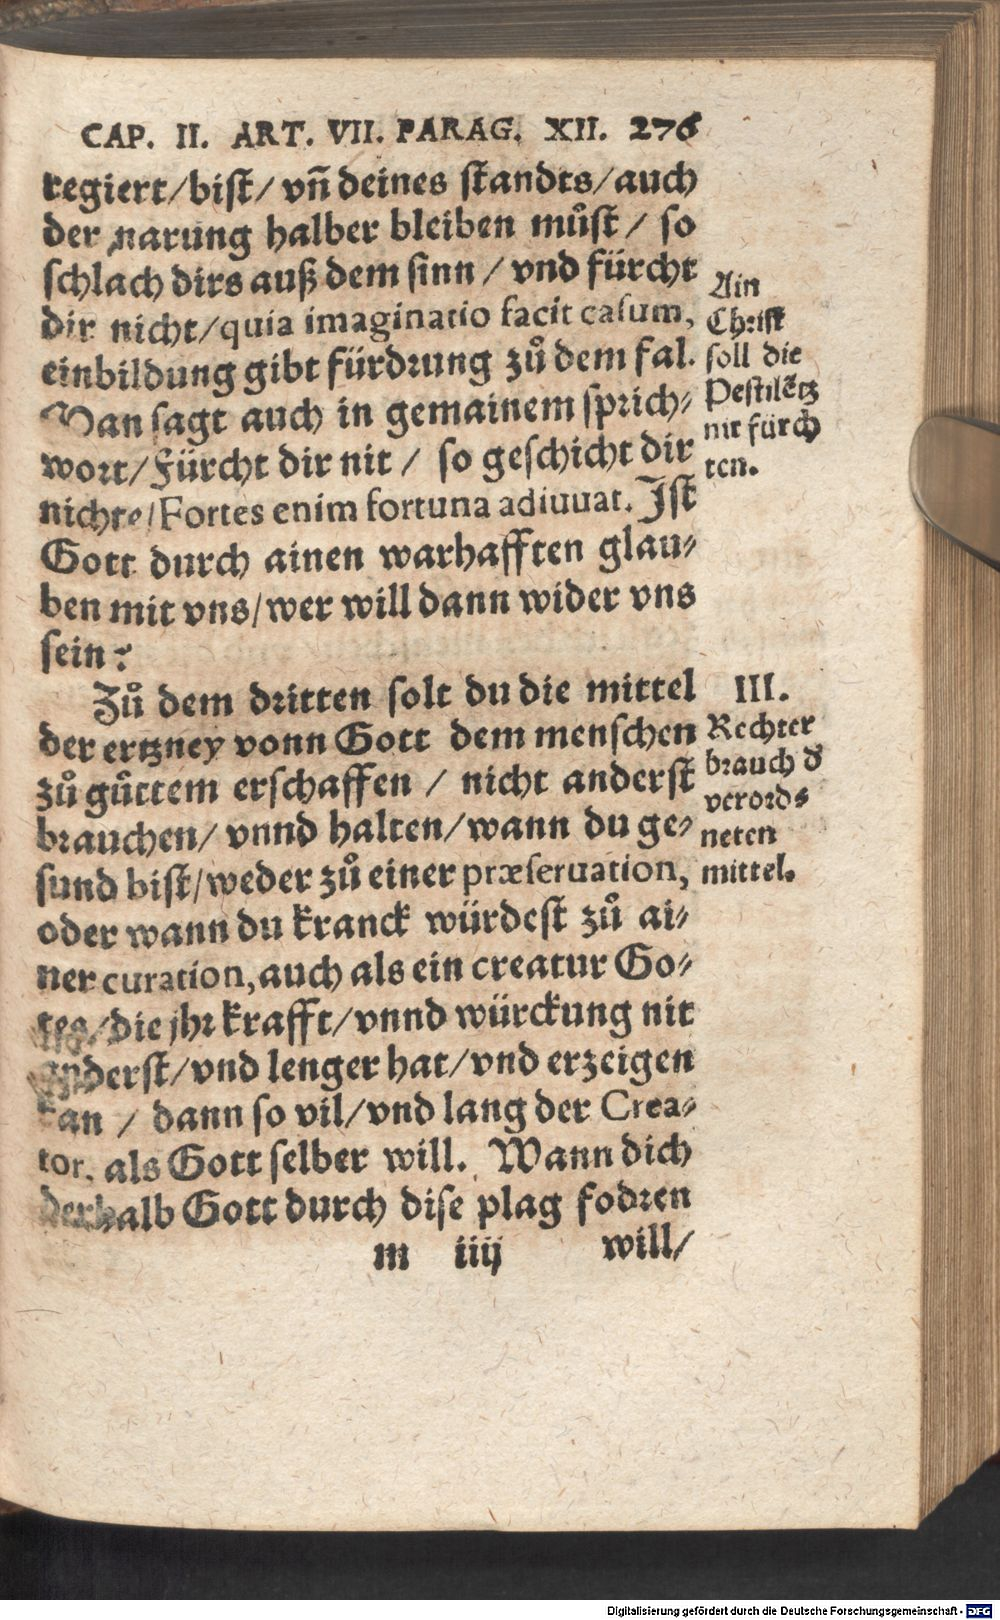 CAP. II. ART. VII. PARAG. XII. 276
regiert/bist/ vñ deines standts/auch
der narung halber bleiben můst / so
schlach dirs auß dem sinn / vnd fürcht
dir nicht/quia imaginatio facit casum,
einbildung gibt fürdrung zů dem fal.
Man sagt auch in gemainem sprich-
wort/Fürcht dir nit / so geschicht dir
nichts/Fortes enim fortuna adiuuat. Ist
Gott durch ainen warhafften glau-
ben mit vns/wer will dann wider vns
sein?
Ain
Christ
soll die
Pestilẽtz
nit fürch
ten.
Zů dem dritten solt du die mittel
der ertzney vonn Gott dem menschen
zů gůttem erschaffen / nicht anderst
brauchen/ vnnd halten/wann du ge-
sund bist/weder zů einer præseruation,
oder wann du kranck würdest zů ai-
ner curation, auch als ein creatur Go-
tes/die jhr krafft/vnnd würckung nit
anderst/vnd lenger hat/vnd erzeigen
kan / dann so vil/vnd lang der Crea-
tor, als Gott selber will. Wann dich
derhalb Gott durch dise plag fodren
III.
Rechter
brauch d̕
verord-
neten
mittel.
m iiij will/
Digitalisierung gefördert durch die Deutsche Forschungsgemeinschaft - DFG